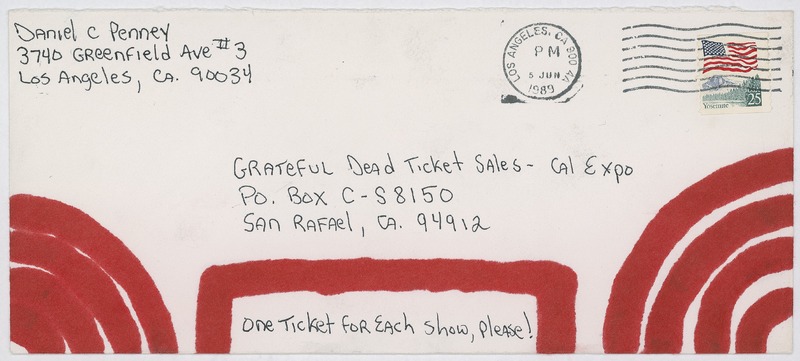 Daniel C Penney
3740 Greenfield Ave #3
Los Angeles, CA. 90034
LOS ANGELES, CA 900 AA
PM
5 JUN
1989
Yosemite
25
GRATEFUL Dead Ticket Sales - Cal Expo
P.O. Box C-S8150
San Rafael, CA. 94912
One Ticket for Each show, please!